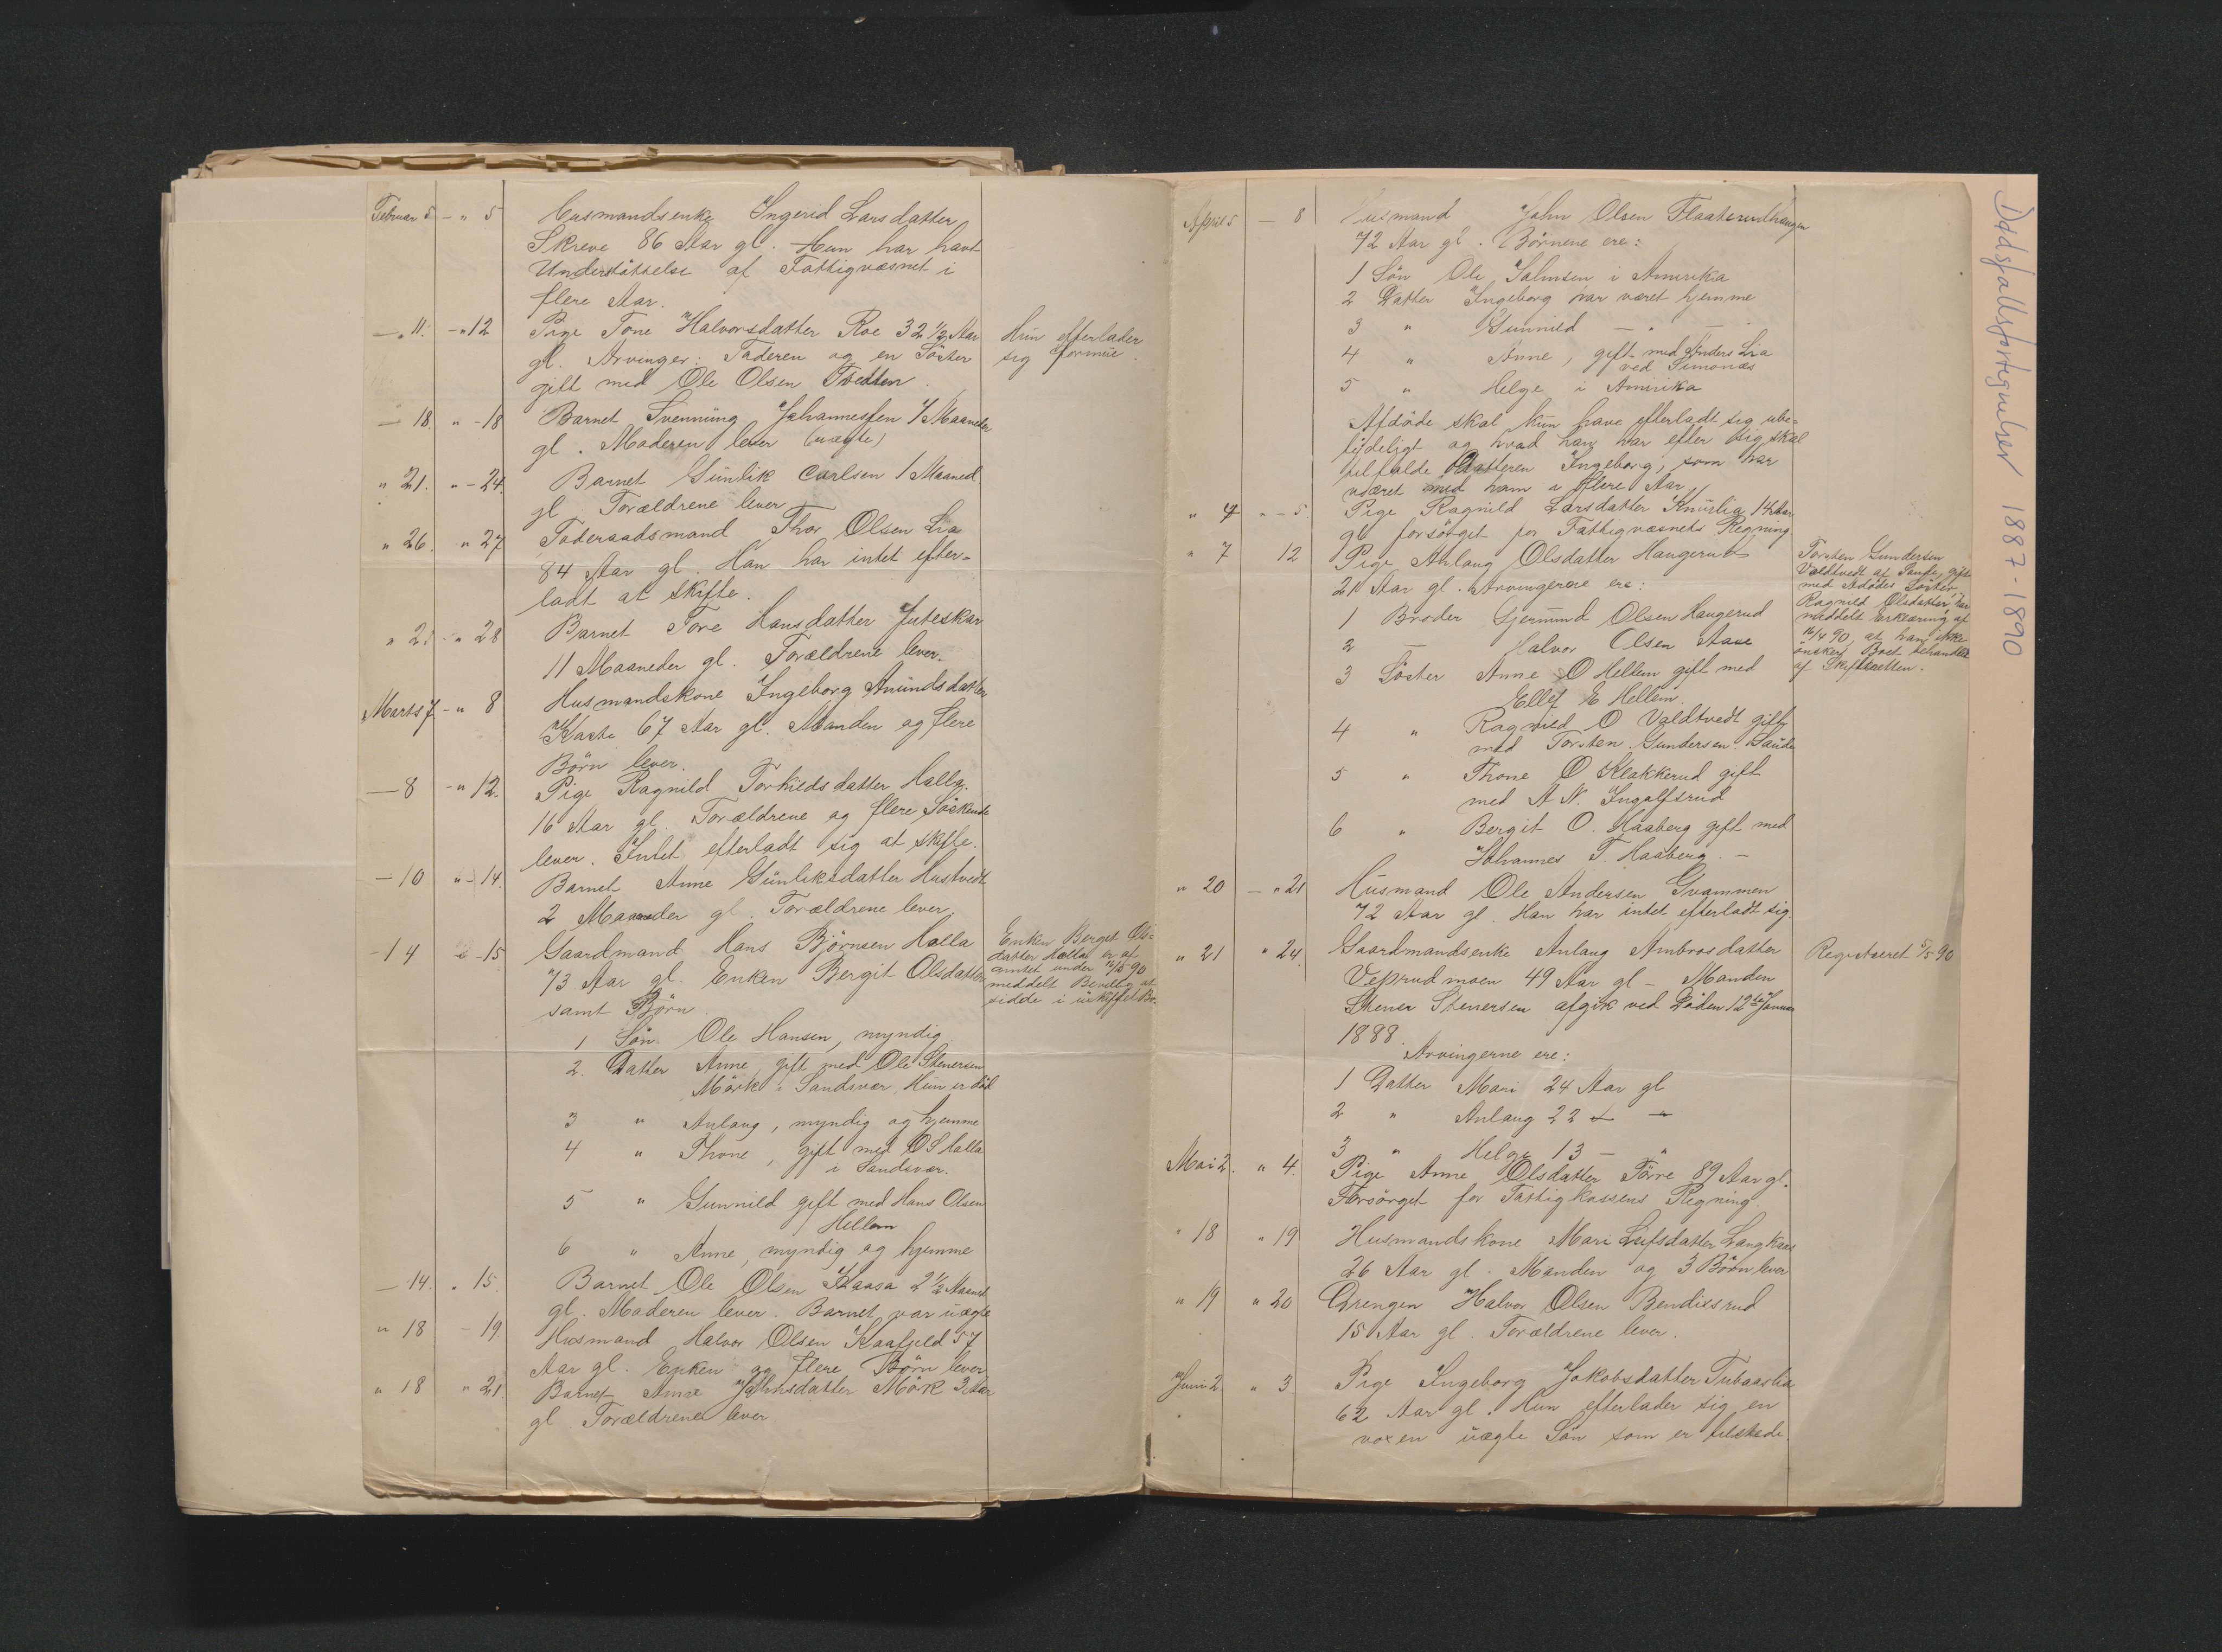 Februar 5 - " 5 Husmandsenke Ingerid Larsdatter
Skreve 86 Aar gl. Hun har havt
Understöttelse af Fattigvæsnet i
flere Aar.
- " 11. - " 12 Pige Tone Halvorsdatter Roe 32 1/2 Aar
gl. Arvinger: Faderen og en Söster
gift med Ole Olsen Tvedten.
Hun efterlader
sig Formue.
- 18. " - 18 Barnet Svenning Johannessen 7 Maaneder
gl. Moderen lever (uægte)
" 21. " - 24. Barnet Günlik Carlsen 1 Maaned
gl. Forældrene lever
" 26. " 27 Föderaadsmand Thor Olsen Lia
84 Aar gl. Han har intet efter-
ladt at skifte.
" - " 28 Barnet Tore Hansdatter Juteskar
11 Maaneder gl. Forældrene lever.
Marts 7 - " 8 Husmandskone Ingeborg Anundsdatter
Kaste 67 Aar gl. Manden og flere
Börn lever.
- 8 - " 12. Pige Ragnild Torkildsdatter Halla
16 Aar gl. Forældrene og flere Söskende
lever. Intet efterladt sig at skifte.
- 10 " - 14. Barnet Anne Günliksdatter Hustvedt
2 Maaneder gl. Forældrene lever.
- 14 - 15 Gaardmand Hans Björnsen Halla
73 Aar gl. Enken Bergit Olsdatter
samt Börn
Enken Berget Ols-
datter Halla er af
amtet under 12/5 90
meddelt Bevilling at
sidde i uskiftet Bo.
1 Sön Ole Hansen, myndig
2. Datter Anne gift med Ole Stenersen
Mörk i Sandsvær. Hun er död
3 " Anlaug, myndig og hjemme
4 " Thone, gift med O S Halla
i Sandsvær.
5 " Gunnild gift med Hans Olsen
Hellem
6 " Anne, myndig og hjemme
- 14. " 15. Barnet Ole Olsen Kaasa 2 1/2 Maaned
gl. Moderen lever. Barnet var uægte
" 18 - 19 Husmand Halvor Olsen Kaafjeld 57
Aar gl. Enken og flere Börn lever
" 18 " 21. Barnet Anne Johnsdatter Mörk 3 Aar
gl. Forældrene lever
April 5 - 8 Husmand John Olsen Flaatsrudhaugen
72 Aar gl. Börnene ere:
1 Sön Ole Johnsen i Amerika
2 Datter Ingeborg har været hjemme
3 " Gunnild - " -
4 " Anne, gift med Anders Lia
ved Simonæs
5 " Helge i Amirika
Afdöde skal kun have efterladt sig ube-
tydeligt og hvad han har efter sig skal
tilfalde Datteren Ingeborg, som har
været med ham i flere Aar,
" 4 " - 5. Pige Ragnild Larsdatter Knüslia 14 Aar
gl. forsörget for Fattigvæsnets Regning
" 7 12 Pige Anlaug Olsdatter Haugerud
21 Aar gl. Arvingerne ere:
Torsten Gundersen
Valdtvedt af Saude, gift
med Afdödes Söster,
Ragnild Olsdatter, har
meddelt Erklæring af
16/4 90, at han ikke
önsker Boet behandlet
af Skifteretten.
1 Broder Gjermund Olsen Haugerud
2 - Halvor Olsen Aase
3 Söster Anne O Hellem gift med
Ellef E Hellem
4 " Ragnild O Valdtvedt gift
med Torsten Gundersen Saude
5 " Thone O Klakkerud gift
med A N. Ingolfsrud
6 " Bergit O. Haaberg gift med
Johannes T. Haaberg. -
" 20 - " 21 Husmand Ole Andersen Gvammen
72 Aar gl. Han har intet efterladt sig.
" 21 " 24. Gaardmandsenke Anlaug Ambrosdatter
Veprudmoen 49 Aar gl - Manden
Stener Stenersen afgik ved Döden 12te Januar
1888.
Registreret 5/5 90
Arvingerne ere:
1 Datter Mari 24 Aar gl
2 " Anlaug 22 " -
3 " Helge 13 - "
Mai 2. " 4. Pige Anne Olsdatter Törre 89 Aar gl.
Forsörget for Fattigkassens Regning.
" 18 " 19 Husmandskone Mari Leifsdatter Langkaas
26 Aar gl. Manden og 3 Börn lever
" 19 " 20 Drengen Halvor Olsen Bendixsrud
15 Aar gl. Forældrene lever.
Juni 2 " 3 Pige Ingeborg Jakobsdatter Tubaaslia
62 Aar gl. Hun efterlader sig en
voxen uægte Sön som er tilstede.
Dødsfallsfortegnelser 1887-1890